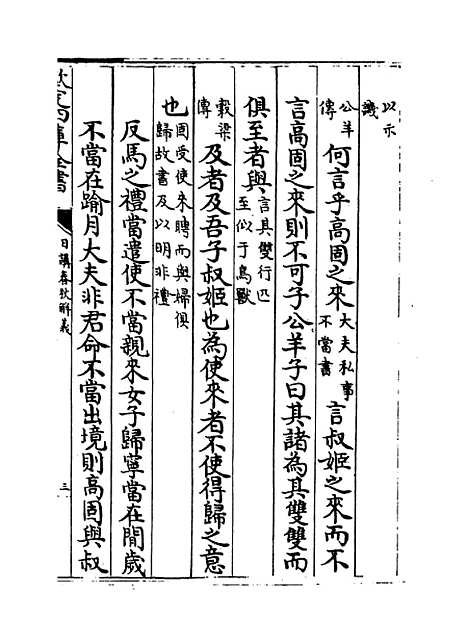 以示譏
公羊傳何言乎高固之來大夫私事不當書言叔姬之來而不
言高固之來則不可子公羊子曰其諸為其雙雙而
俱至者與言其雙行匹至似于鳥獸
穀梁傳及者及吾子叔姬也為使來者不使得歸之意
也固受使來聘而與婦俱歸故書及以明非禮
反馬之禮當遣使不當親來女子歸寧當在閒歲
不當在踰月大夫非君命不當出境則高固與叔
欽定四庫全書
日講春秋解義
三